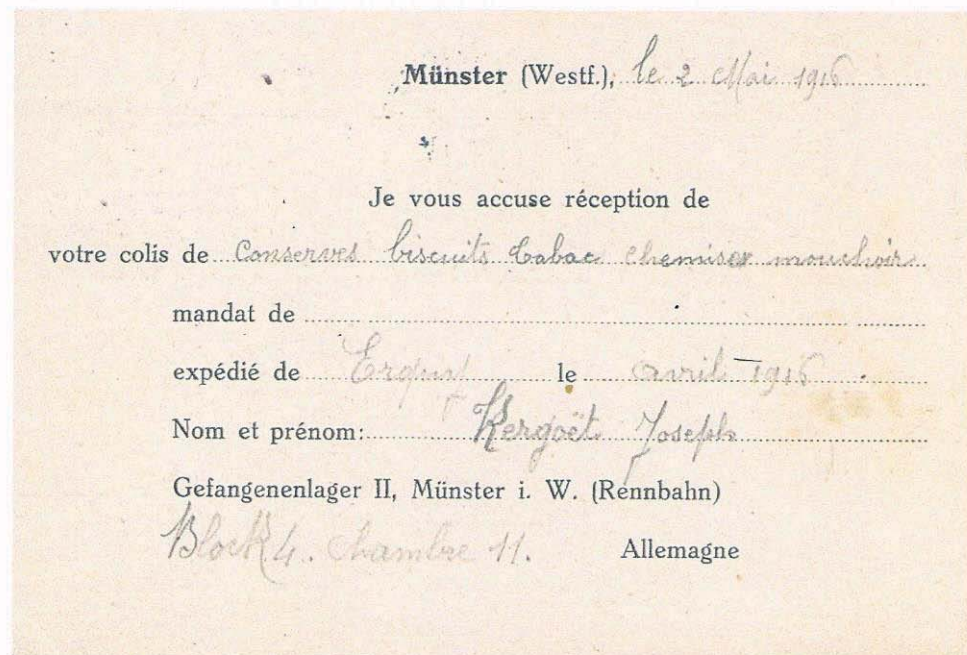 Münster (Westf.), le 2 Mai 1916
Je vous accuse réception de
votre colis de Conserves biscuits tabac chemises mouchoir
mandat de
expédié de Erquy le avril 1916
Nom et prénom: Kergoët Joseph
Gefangenenlager II, Münster i. W. (Rennbahn)
Block 4. chambre 11. Allemagne